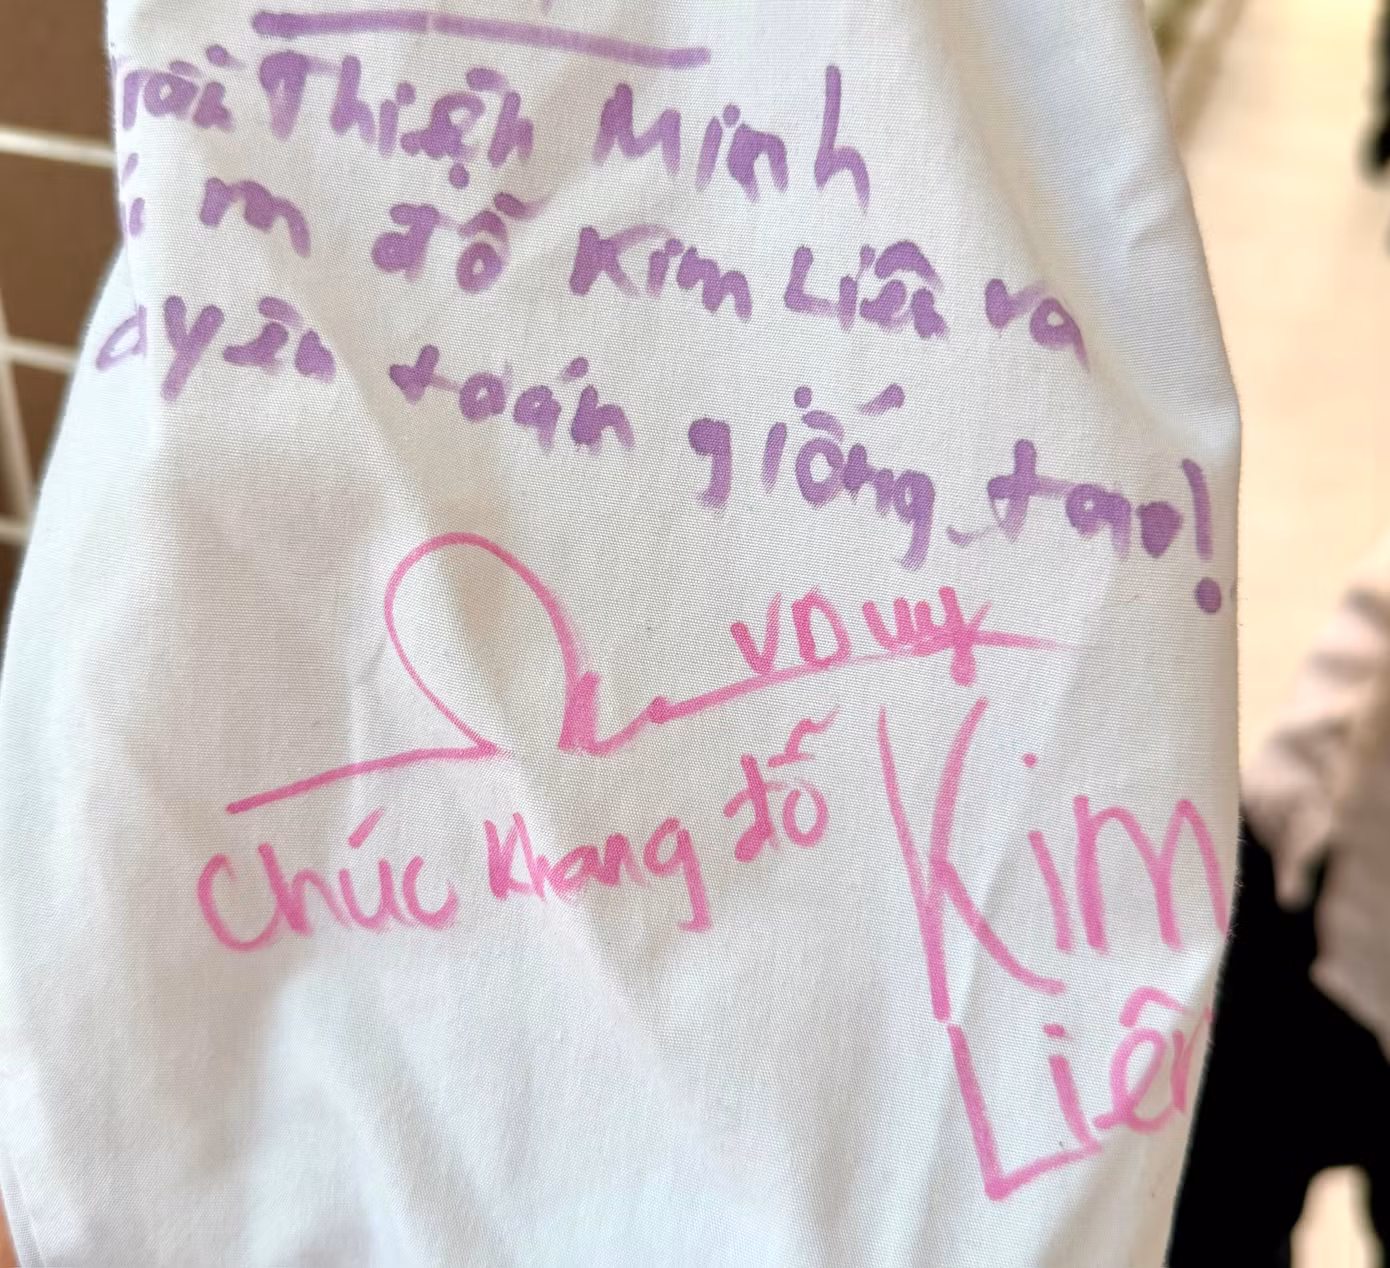 Trần Thiện Minh
m đỗ Kim Liên và
duyên toán giống tao!
VDuy
Chúc Khang đỗ Kim
Liên